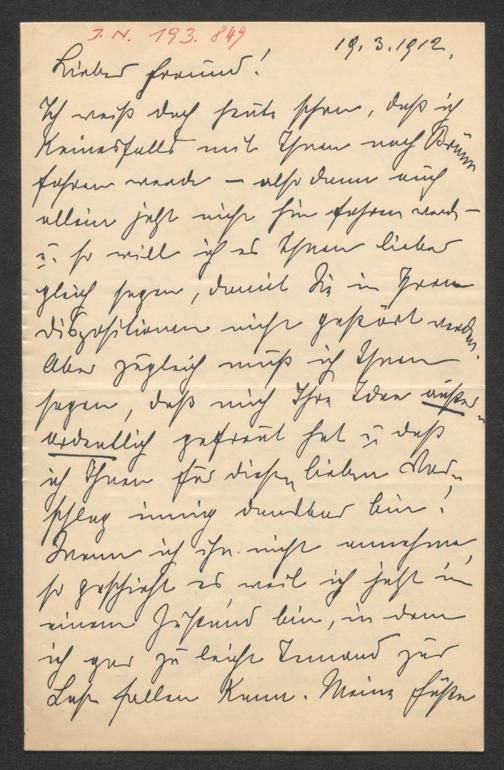 J. N. 193.849
19.3.1912.
Lieber Freund!
Ich weiß doch heute schon, daß ich
keinesfalls mit Ihnen nach Brünn
fahren werde – also dann auch
allein jetzt nicht hin fahren werde –
u. so will ich es Ihnen lieber
gleich sagen, damit Sie in Ihren
Dispositionen nicht gestört werden.
Aber zugleich muß ich Ihnen
sagen, daß mich Ihre Idee außer-
ordentlich gefreut hat u. daß
ich Ihnen für diesen lieben Vor-
schlag innig dankbar bin!
Wenn ich ihn nicht annehme,
so geschieht es weil ich jetzt in
einem Zustand bin, in dem
ich gar zu leicht Jemand zur
Last fallen kann. Meine Füße